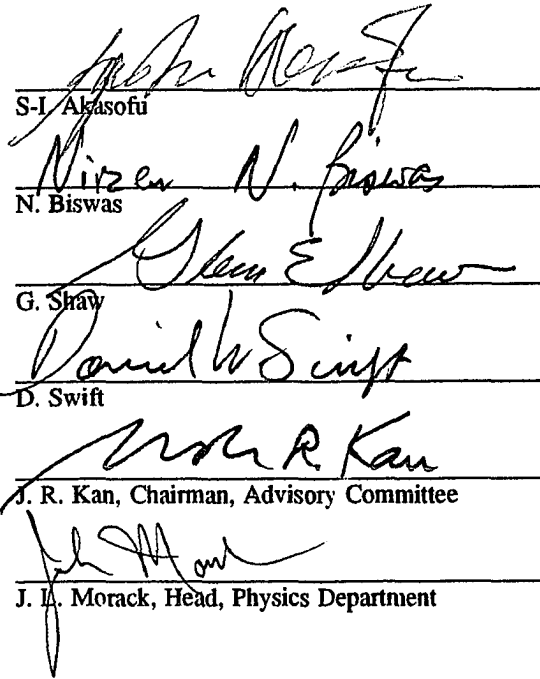 S-I. Akasofu
Niren N. Biswas
N. Biswas
Glenn E Shaw
G. Shaw
Daniel W Swift
D. Swift
R. Kan
J. R. Kan, Chairman, Advisory Committee
John Morack
J. L. Morack, Head, Physics Department